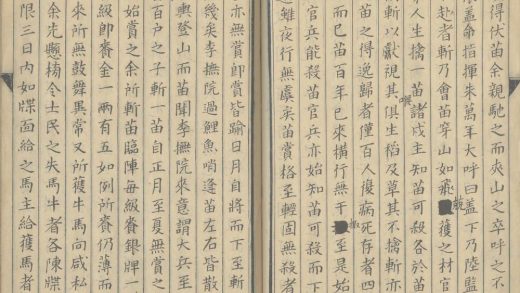 得伏苗余親馳之而夾山之卒呼之不
蓋命指揮朱萬年大呼曰盖下乃陸監
赴者斬乃會苗穿山如飛獲之材官
人生擒一苗諸戍主知苗可殺各於苗
斬以獻視其俱生稻及草其不擒斬亦
苗之得逸歸者僅百人復病死存者四
而巳苗百年巳來橫行無干至是始
官兵能殺苗官兵亦始知苗可殺而下
雖夜行無虞矣苗賞格至輕固無殺者
亦無賞卽賞皆踰日月自將而下至斬
幾矣李撫院過鯉魚哨逢苗左右皆散
輿登山而苗聞李撫院來意謂大兵至
百户之子斬一苗自正月至夏無賞
始賞之余所斬苗臨陣每級賚銀牌一
級卽賚金一兩有五如例所賚仍薄而
來所無鼓舞異常又所獲牛馬向咸私
余先懸榜令士民之失馬牛者各陳牒
限三日内如牒面給之馬主給獲馬者